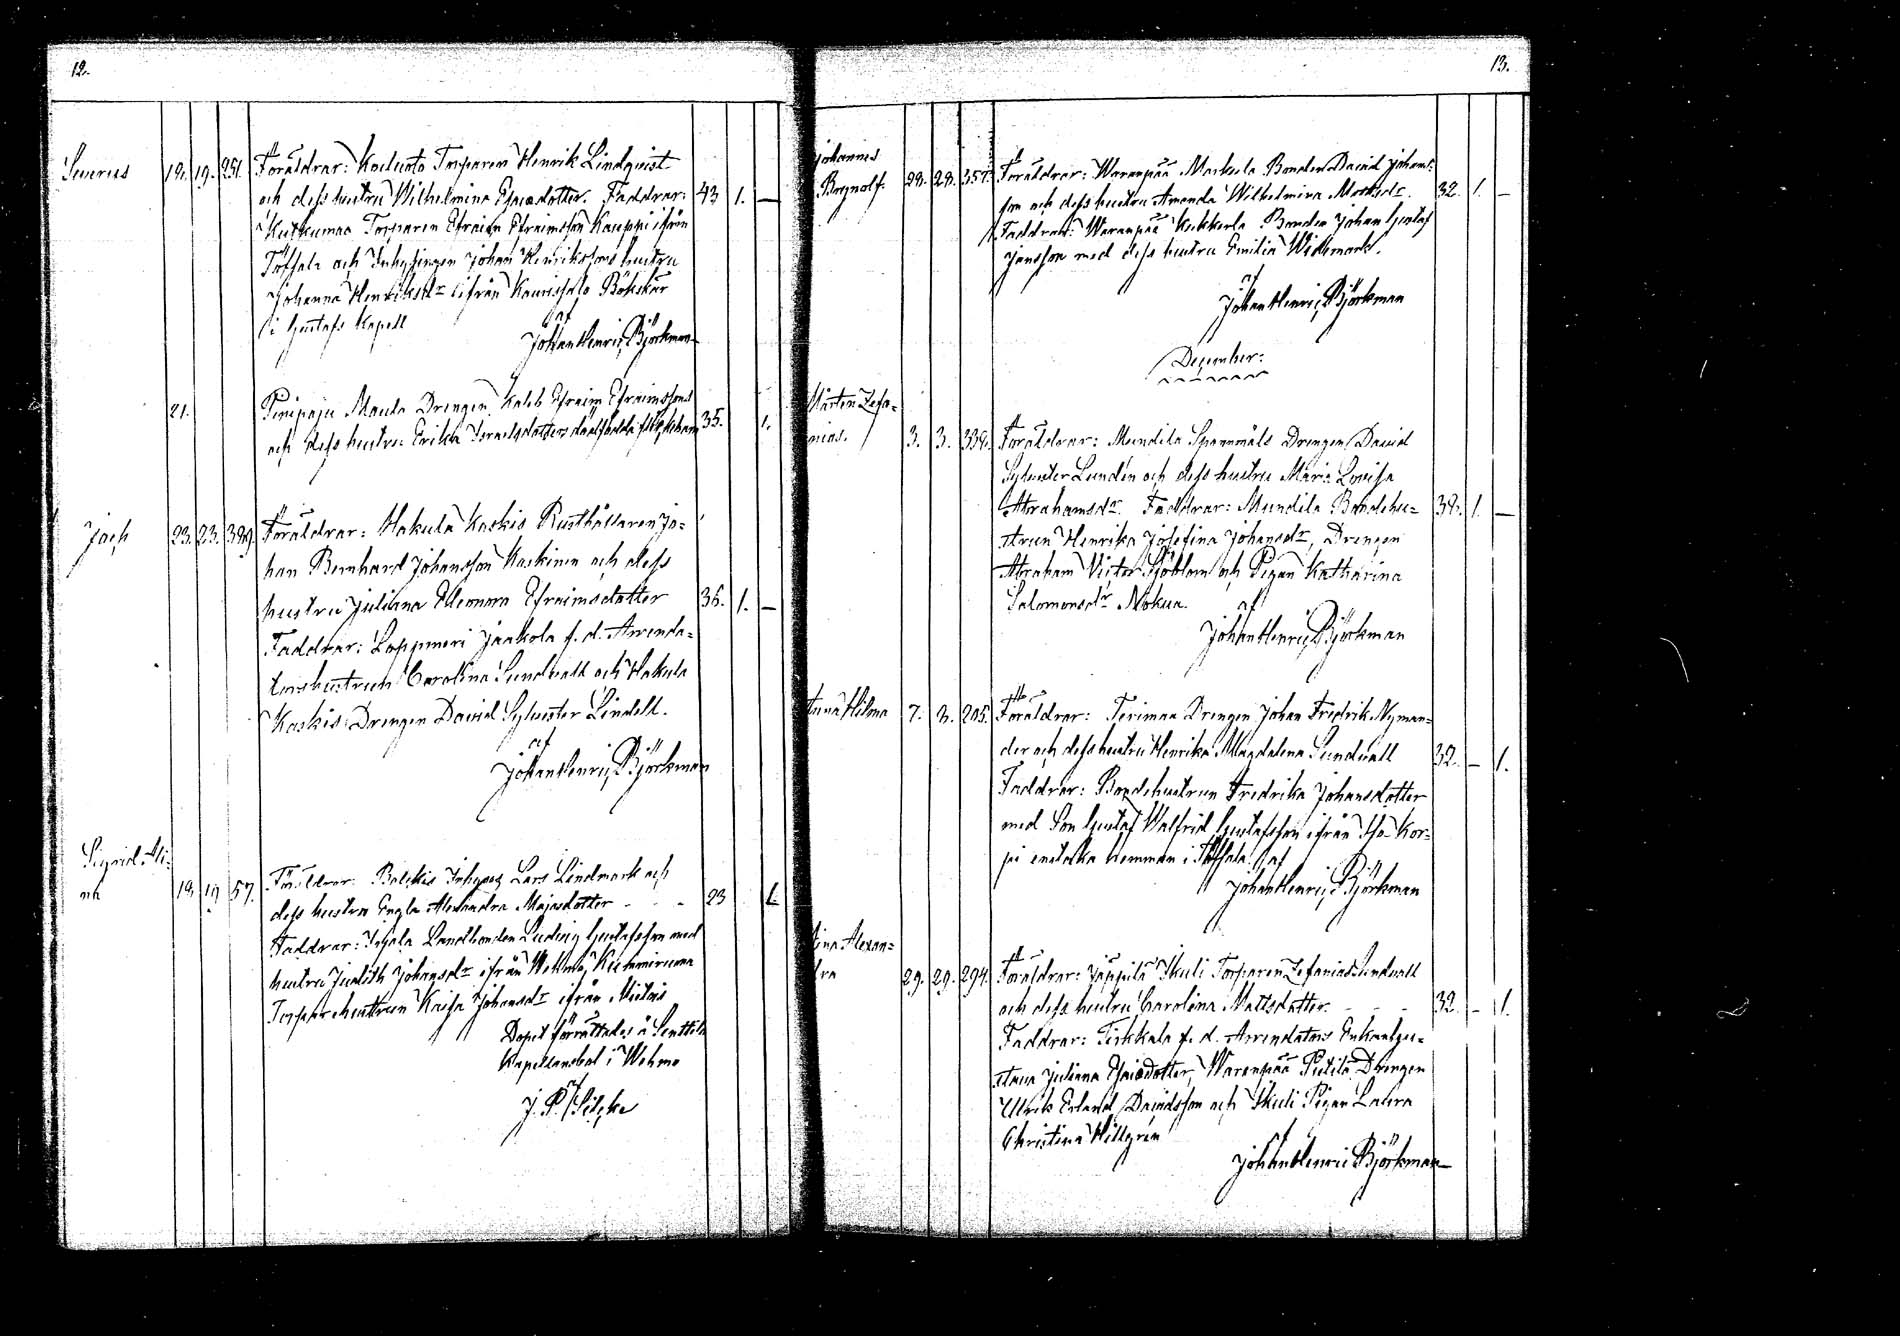 12.
Severus 18. 19. 251. Föräldrar: Torparen Henrik Lindqvist
och dess hustru Wilhelmina Esaiædotter. Faddrar: 43 1. —
Kutkumaa Torparen Efraim Efraimsson Kauppi ifrån
Töfsala och Inhysingen Johan Henrikssons hustru
Johanna Henriksdr ifrån Kaurissalo Bökskär
i Gustafs Kapell
af
Johan Henric Björkman
21. Pinipaju Maula Drengen Kaleb Efraim Efraimssons
och dess hustru Erika Israelsdotters dödfödda 35. 1.
Jach 23. 23. 389. Föräldrar: Hakula Kaskis Rusthållaren Jo=
han Bernhard Johansson Kaskinen och dess
hustru Juliana Eleonora Efraimsdotter 36. 1. —
Faddrar: Lappmeri Jaakola f. d. Arrenda=
torshustrun Carolina Sundvall och Hakula
Kaskis Drengen David Sylvester Lindell.
af
Johan Henric Björkman
Sigrid Ali=
na 18 19 57. Föräldrar: Balckis Inhyses Lars Lindmark och
dess hustru Engla Alexandra Majasdotter - - - 23 1.
Faddrar: Landbonden Ludvig Gustafsson med
hustru Judith Johansdr ifrån Wehmo, Kummiruma
Torparehustrun Kaisa Johansdr ifrån Mietois
Dopet förrättades å Senttila
Kapellansbol i Wehmo
af
J. P.
13.
Johannes
Brynolf. 28. 28. 357. Föräldrar: Waranpää Markula Bonden David Johans=
son och dess hustru Amanda Wilhelmina Matsdr. 32. 1. —
Faddrar: Waranpää Kukkerla Bonden Johan Gustaf
Jansson med dess hustru Emilia Widemark.
af
Johan Henric Björkman
December:
Mårten Zefa=
nias. 3. 3. 338. Föräldrar: Mundila Spannmåls Drengen David
Sylvester Lundén och dess hustru Maria Lovisa
Abrahamsdr. Faddrar: Mundila Bondehu= 38. 1. —
strun Henrika Josefina Johansdr, Drengen
Abraham Victor Sjöblom och Pigan Katharina
Salomonsdr Nokua.
af
Johan Henric Björkman
Anna Hilma 7. 3. 205. Föräldrar: Terimaa Drengen Johan Fredrik Nyman=
der och dess hustru Henrika Magdalena Sundvall 32. — 1.
Faddrar: Bondehustrun Fredrika Johansdotter
med Son Gustaf Walfrid Gustafsson ifrån Iso-Kor=
pi enstaka hemman i Töfsala. af
Johan Henric Björkman
Alexan=
dra 29. 29. 294. Föräldrar: Jäppilä Skuli Torparen Zefanias Sundvall
och dess hustru Carolina Mattsdotter. - - - 32. - 1.
Faddrar: Tirkkala f. d. Arrendators Enkan
Juliana Esaiædotter, Waranpää Pietilä Drengen
Ulrik Erland Davidsson och Skuli Pigan Laura
Christina Hillgrén
af
Johan Henric Björkman